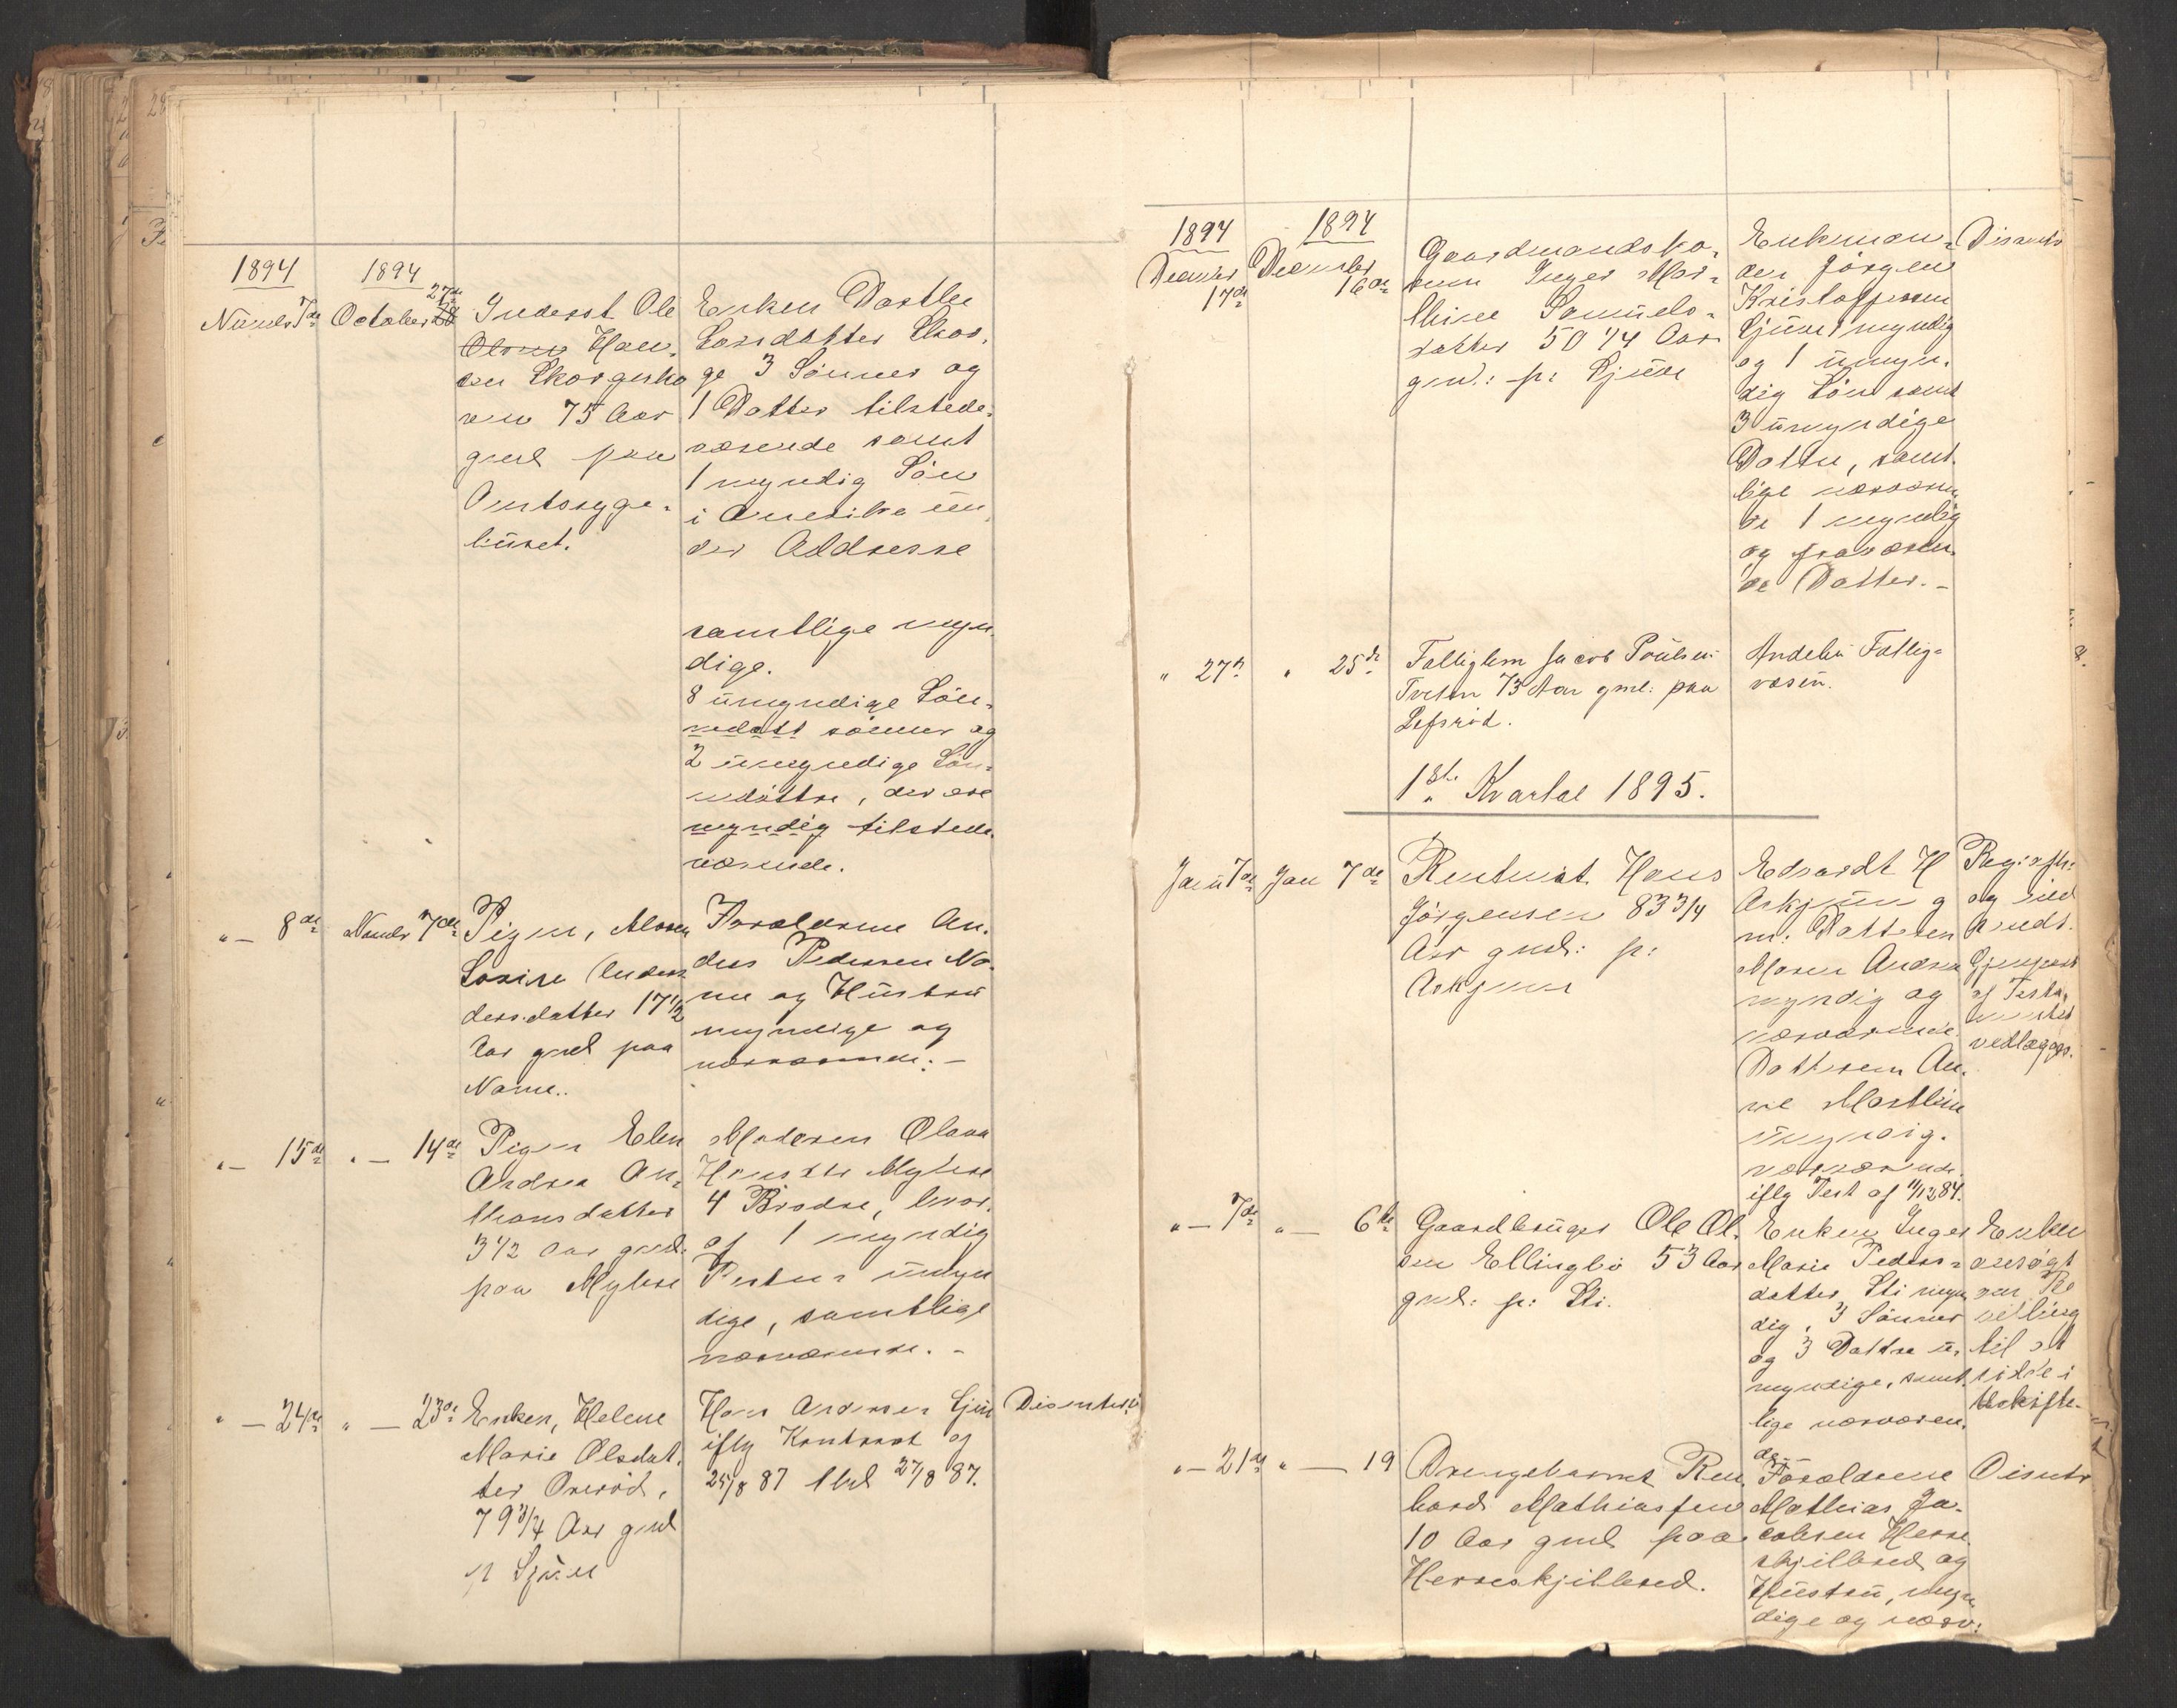 1894
1894
Novmbr 7de
October 27de
Inderst Ole
Olsen Han-
sen Skorgesho
ven 75 Aar
gml paa
Amtssyge-
huset.
Enken Dorthe
Larsdatter Skor-
ge 3 Sönner og
1 Datter tilstede-
værende samt
1 myndig Sön
i Amerika un-
der Addresse
samtlige myn-
dige.
8 umyndige Sön-
nedatt sönner og
2 umyndige Sön-
nedöttre, der ere
myndig tilstede-
værende.
"— 8de
Novmbr 7de
Pigen, Maren
Lovise Anders
dersdatter 17 1/2
Aar gml paa
Narne..
Forældrene An-
ders Pedersen Nar-
ne og Hustru
myndige og
nærværende.—
"— 15de
"— 14de
Pigen Elen
Andrea An-
thonsdatter
3 1/2 Aar gml.
paa Myhre
Moderen Olava
Hansdtr Myhre
4 Brödre, hvor-
af 1 myndig
Resten umyn
dige, samtlige
nærværende.—
"— 24de
"— 23de
Enken, Helene
Marie Olsdat-
ter Overöd,
79 3/4 Aar gml
p
Hans Andersen
iflg Kontrakt af
25/8 87 thl 27/8 87.
Disenter
1894
1894
December
17de
December
16de
Gaardmandsko-
nen Inger Mar-
thine Samuels-
datter 50 1/4 Aar
gml: p:
Enkeman-
den Jörgen
Kristoffersen
myndig
og 1 umyn-
dig Sön samt
3 umyndige
Döttre, samt-
lige nærværen
de 1 myndig
og fraværen-
de Datter.—
Disenter
" 27de
" 25de
Fattiglem Jacob Poulsen
Tveten 73 Aar gml: paa
Lefsröd.
Andebu Fattig-
væsen.
1ste Kvartal 1895.
Janu 7de
Jan 7de
Rentenist Hans
Jörgensen 83 3/4
Aar gml: p:
Askjem
Edvardt H
Askjem g
m: Datteren
Maren Andrea
myndig og
nærværende
Datteren An-
ne Marthine
umyndig.
nærværende.
iflg Test af 11/12 84.
Registr:
og ind
sendt.
Gjenpart
af Testa-
mentet
vedlægges.
"— 7de
"— 6te
Gaardbruger Ole Ol-
sen Ellingbö 53 Aar
gml: p: Sti.
Enken Inger
Marie Peders-
datter Sti myn
dig, 3 Sönner
og 3 Döttre u-
myndige, samt-
lige nærværen-
de—
Enken
ansögt
om Be
villing
til at
sidde i
Uskifte
"— 21de
"— 19
Drengebarnet Ren
hard Mathiassen
10 Aar gml paa
Herreskjelbred.
Forældrene
Mathias Ja-
cobsen Herre
skjelbred og
Hustru, myn
dige og nærv:
Disentr